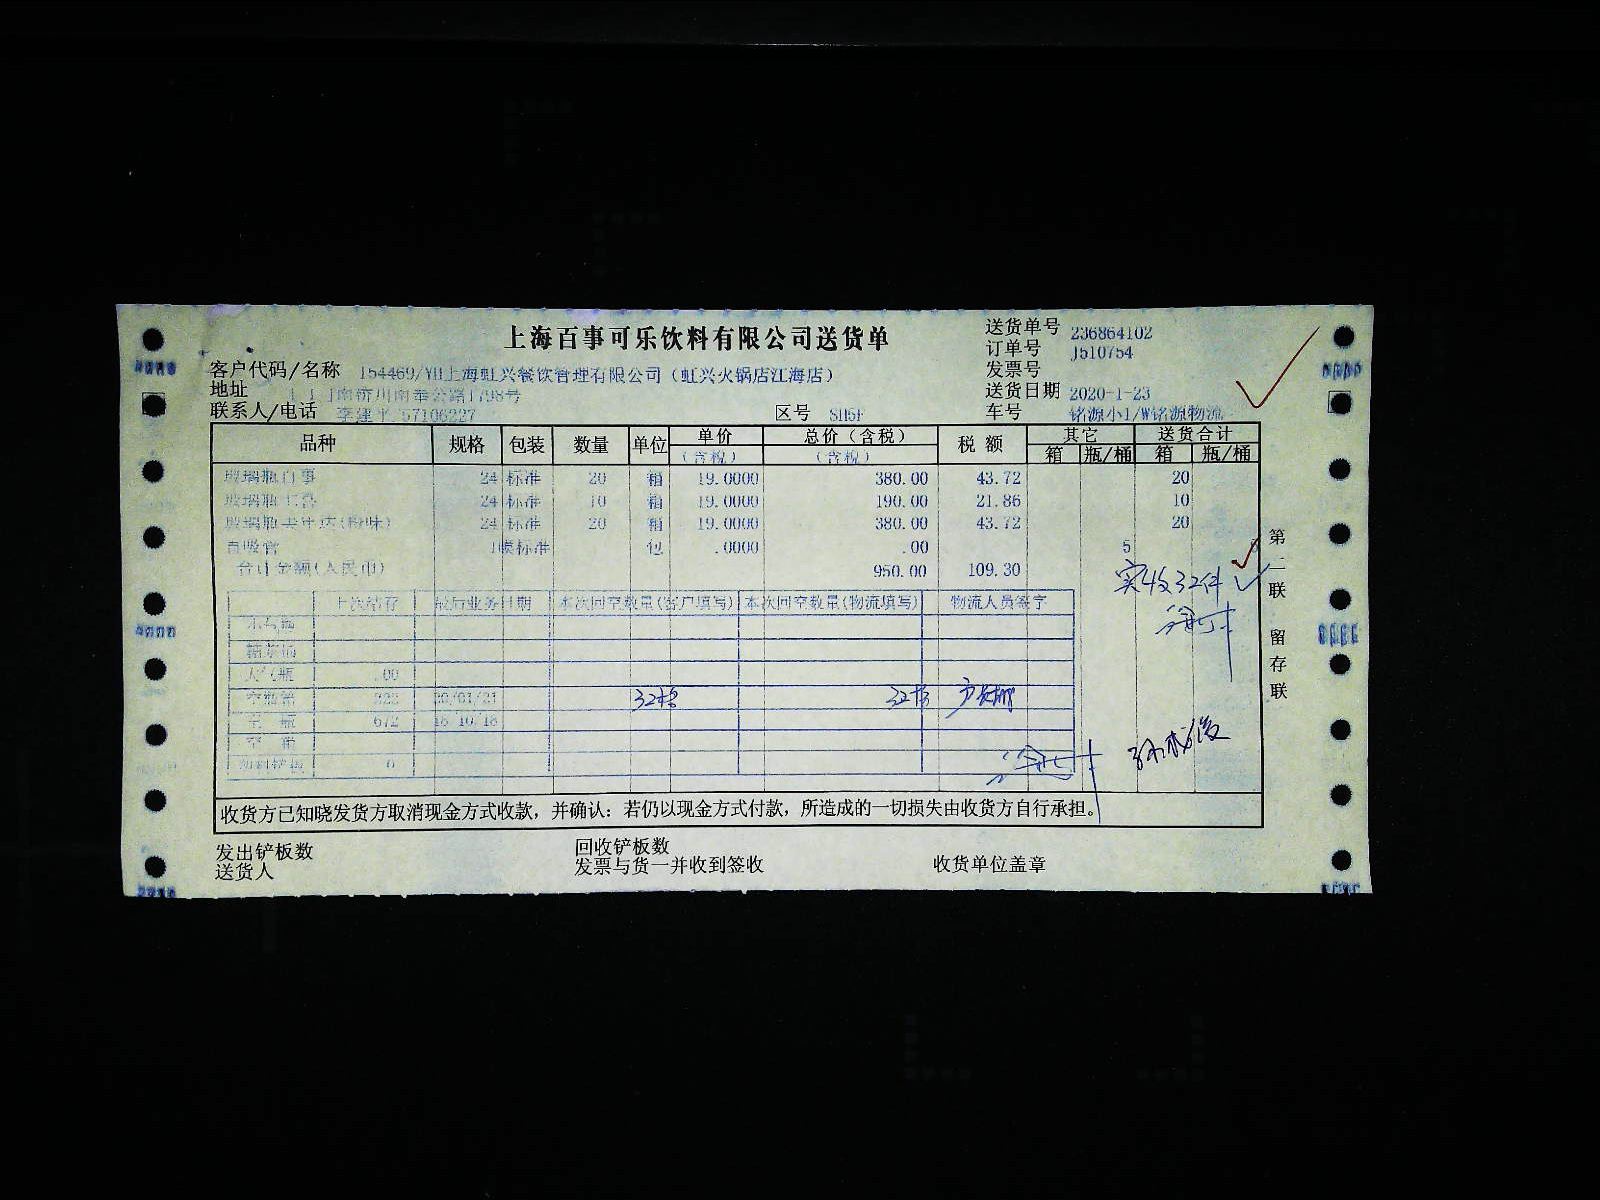 上海百事可乐饮料有限公司送货单
送货单号 236864102
订单号 J510754
发票号
客户代码/名称 154469/YH上海虹兴餐饮管理有限公司（虹兴火锅店江海店）
送货日期 2020-1-23
地址 南桥川南奉公路1798号
联系人/电话 李建平 57106227
区号 SH5F
车号 铭源小1/W铭源物流
品种 规格 包装 数量 单位 单价 总价（含税） 税额 其它 送货合计
（含税） （含税） 箱 瓶/桶 箱 瓶/桶
玻璃瓶百事 24 标准 20 箱 19.0000 380.00 43.72 20
玻璃瓶七喜 24 标准 10 箱 19.0000 190.00 21.86 10
玻璃瓶美年达(橙味) 24 标准 20 箱 19.0000 380.00 43.72 20
百吸管 1 标准 包 .0000 .00 5
合计金额(人民币) 950.00 109.30
实收32件
上次结存 最后业务日期 本次回空数量(客户填写) 本次回空数量(物流填写) 物流人员签字
大气瓶 .00
空瓶箱 822 20/01/21 32 32
空瓶 672 18/10/18
塑料栈板 0
收货方已知晓发货方取消现金方式收款，并确认：若仍以现金方式付款，所造成的一切损失由收货方自行承担。
发出铲板数 回收铲板数
送货人 发票与货一并收到签收 收货单位盖章
第二联 留存联